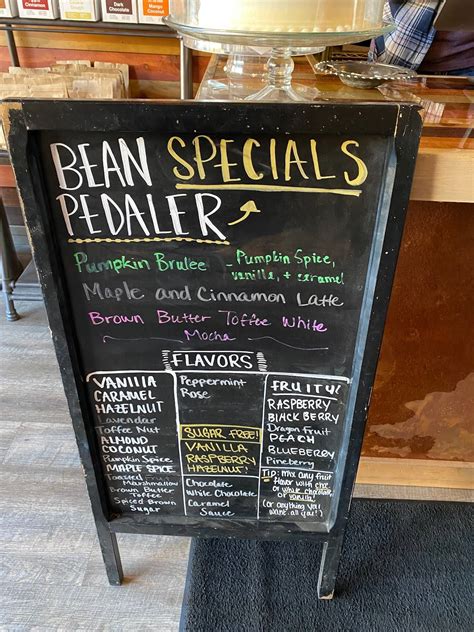 Dark Chocolate
BEAN SPECIALS
PEDALER
Pumpkin Brulee - Pumpkin Spice,
vanilla, + caramel
Maple and Cinnamon Latte
Brown Butter Toffee White
Mocha
FLAVORS
VANILLA
CARAMEL
HAZELNUT
Lavendar
Toffee Nut
ALMOND
COCONUT
Pumpkin Spice
MAPLE SPICE
Toasted
Marshmallow
Brown Butter
Toffee
Spiced Brown
Sugar
Peppermint
Rose
SUGAR FREE!
VANILLA
RASPBERRY
HAZELNUT!
Chocolate
White Chocolate
Caramel
Sauce
FRUITY!
RASPBERRY
BLACKBERRY
Dragon Fruit
PEACH
BLUEBERRY
Pineberry
TIP: mix any fruit
flavor with choc
or white chocolate
or vanilla!
(or anything you
want all you!)